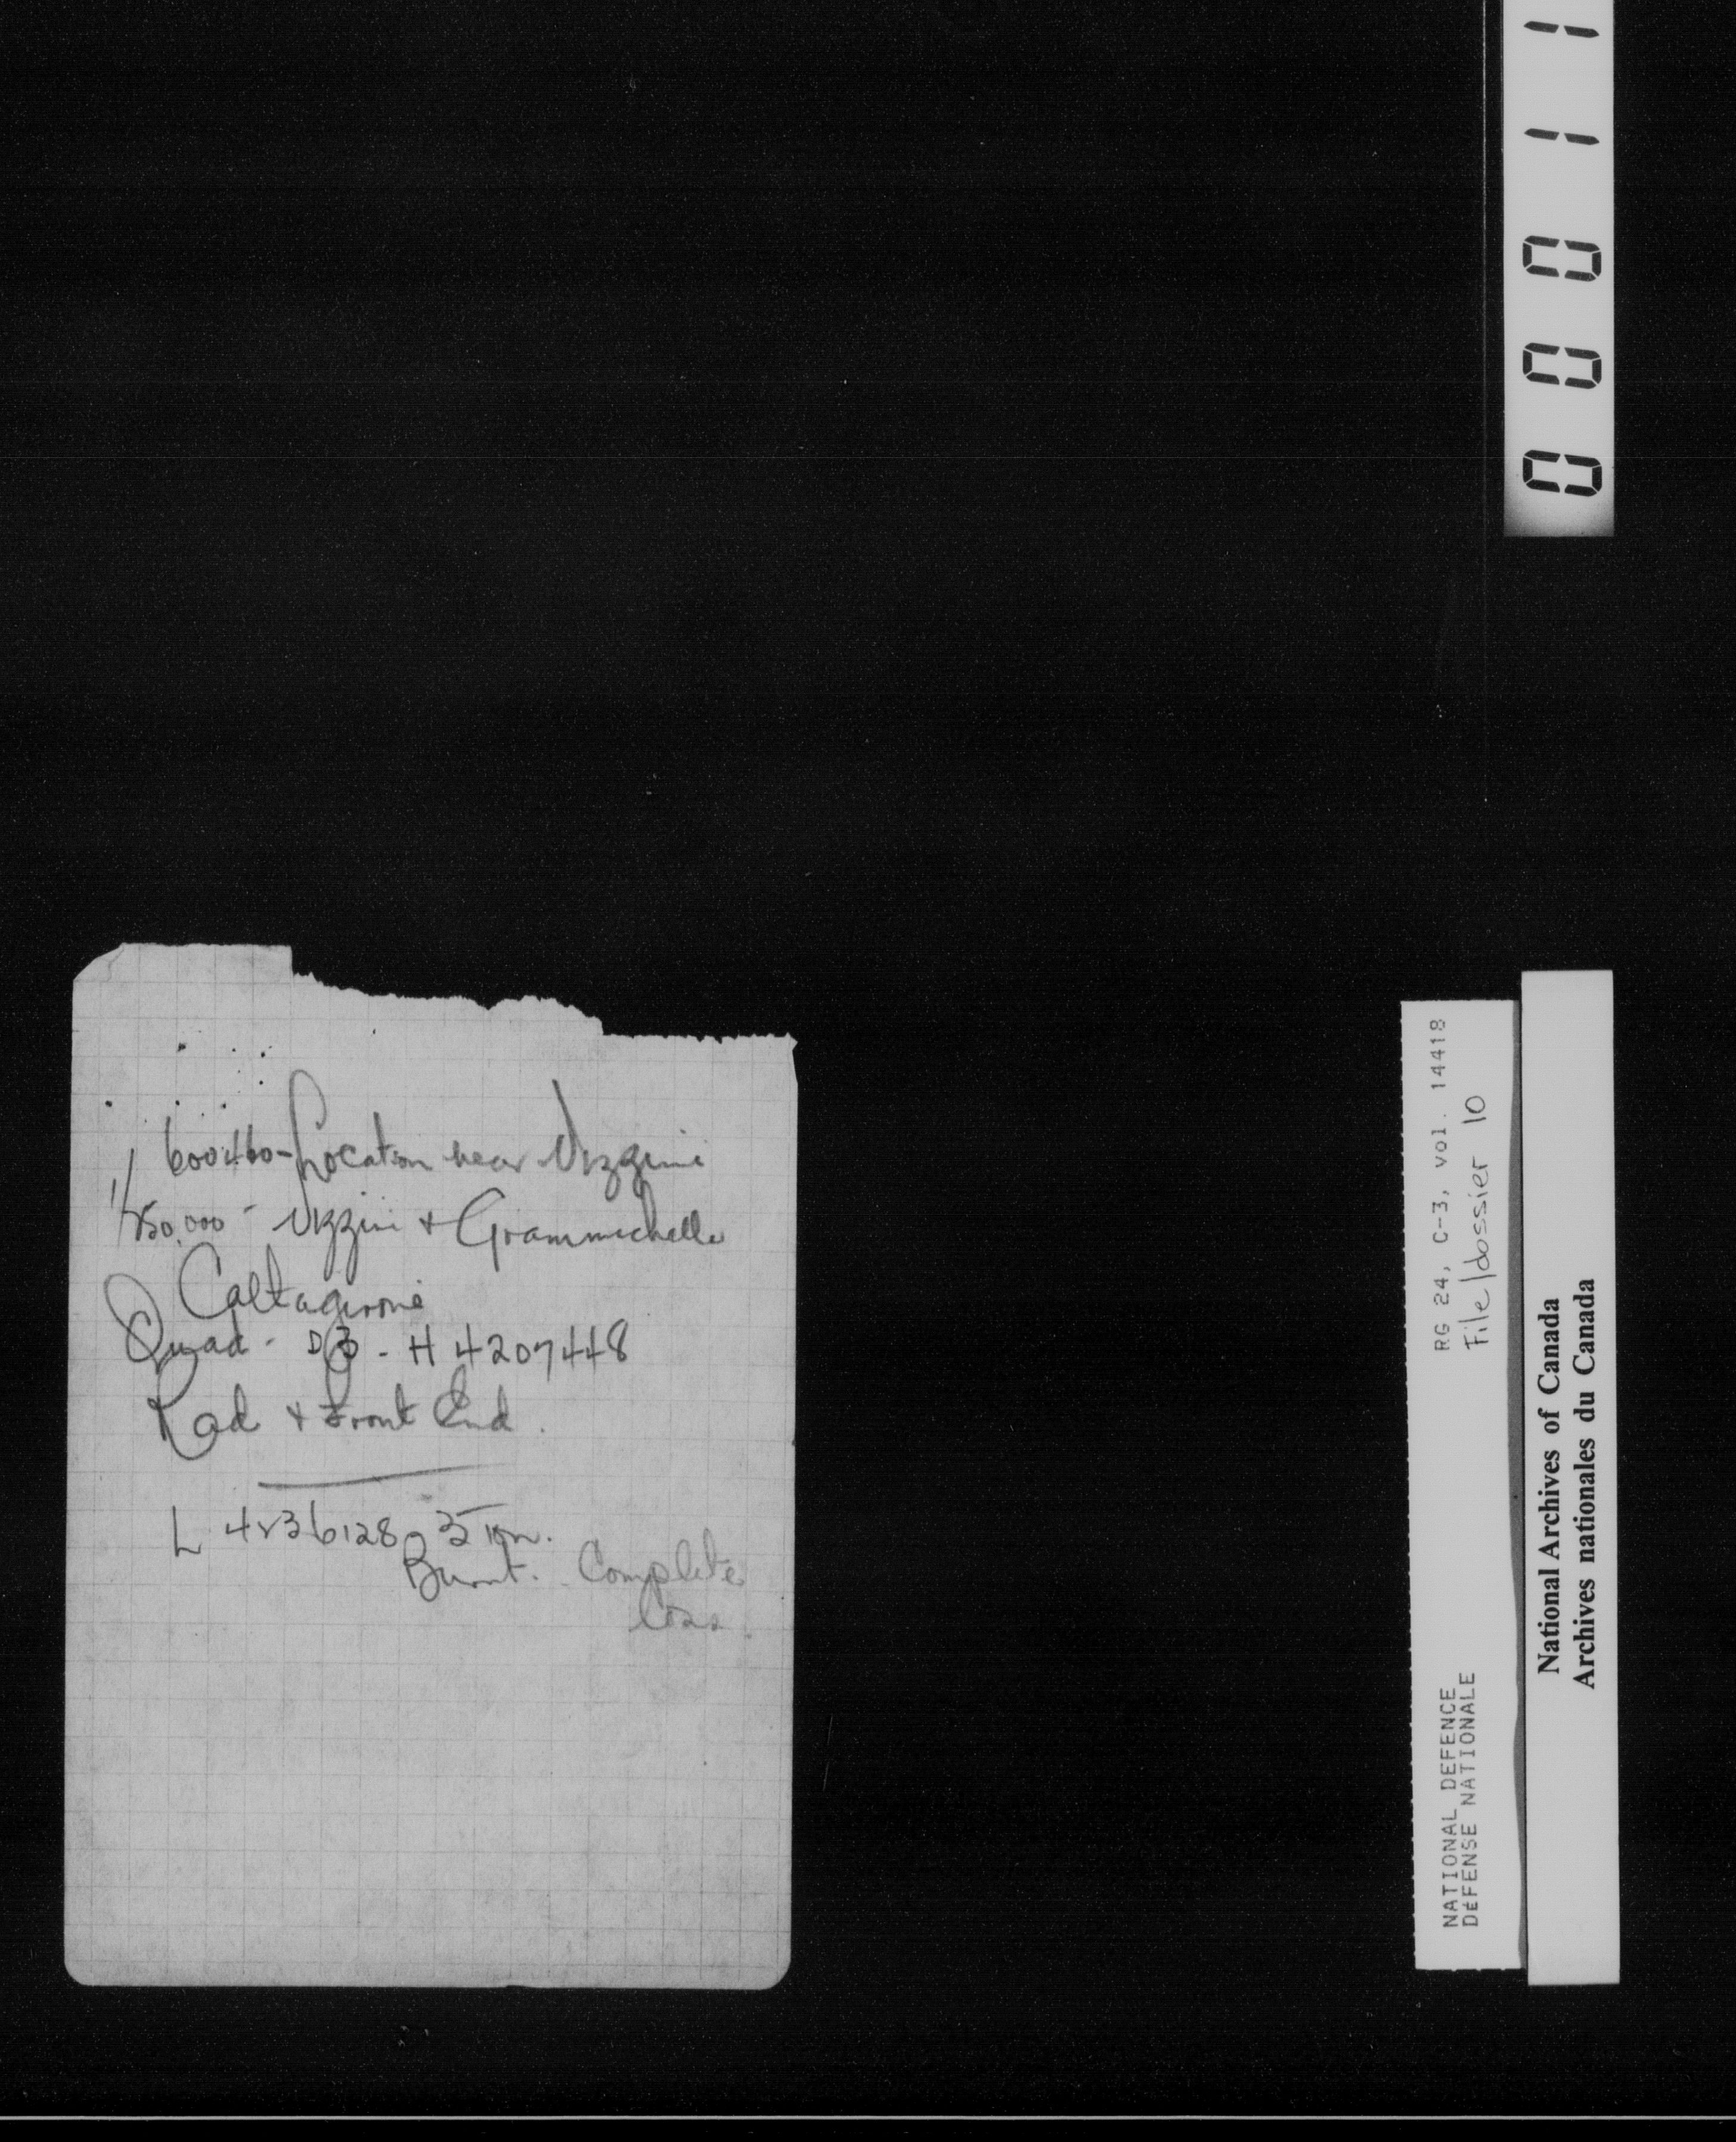 600460 - Location near Vizzini
1/50,000 - Vizzini + Grammichelle
Caltagirone
Quad - D3 - H 4207448
Rad + Front End.
L 4236128
Burnt. Complete
loss.
00011
RG 24, C-3, vol. 14418
File/dossier 10
NATIONAL DEFENCE
DÉFENSE NATIONALE
National Archives of Canada
Archives nationales du Canada